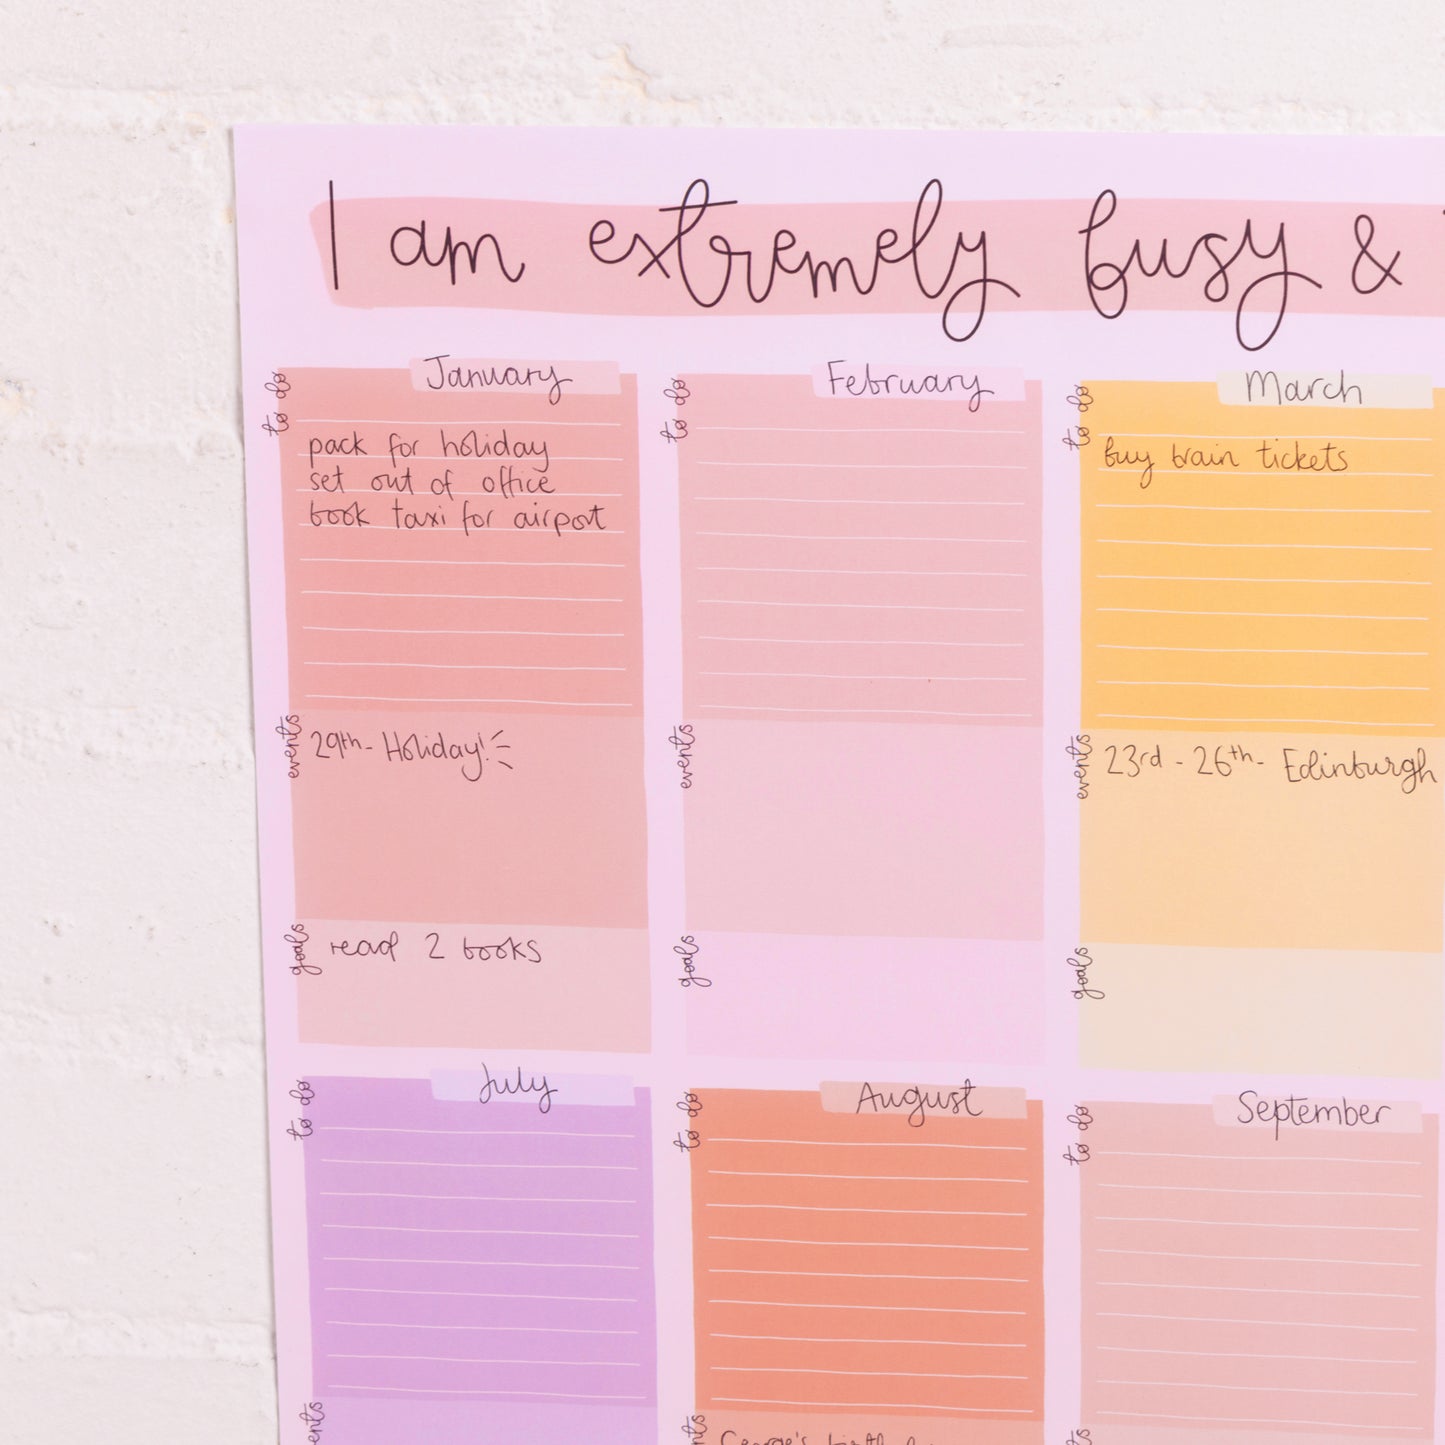 I am extremely busy &
January
to do
pack for holiday
set out of office
book taxi for airport
events
29th - Holiday!
goals
read 2 books
February
to do
events
goals
March
to do
buy train tickets
events
23rd - 26th - Edinburgh
goals
July
to do
August
to do
September
to do